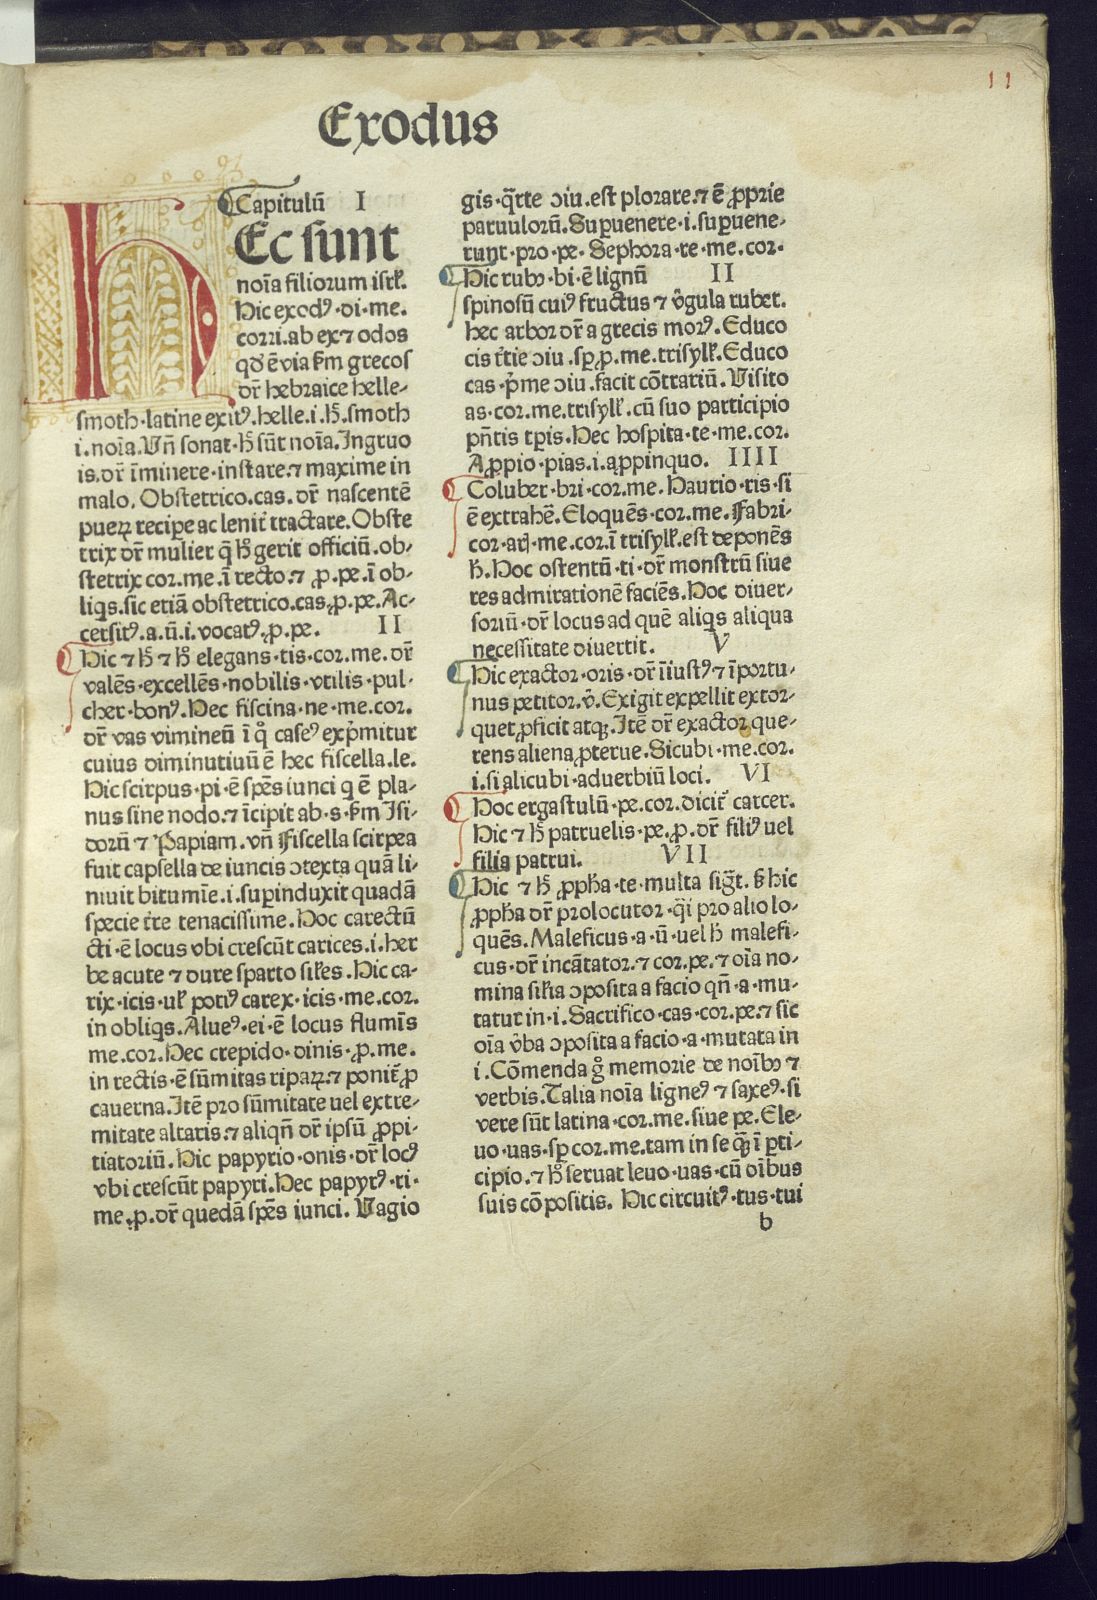 11
Exodus
Capitulū I
HEc sunt
noīa filiorum isrł.
Hic exodꝰ·di·me.
corri.ab ex ⁊ odos
qd' ē via ẜm grecos
dr̄ hebraice helle-
smoth·latine exitꝰ.helle.i.h̄.smoth
i.noīa.Vn̄ sonat·h̄ sūt noīa.Ingruo
is.dr̄ īminere·instare.⁊ maxime in
malo. Obstetrico.cas. dr̄ nascentē
pueꝝ recipe ac leniṫ tractare.Obste
trix dr̄ mulier q̄ hͦ gerit officiū.ob-
stetrix cor.me.ī recto.⁊ ꝓ.pe.ī ob-
liqs.sic etiā obstetrico.cas.ꝓ.pe.Ac-
cersitꝰ.a.ū.i.vocatꝰ.ꝓ.pe. II
Hic ⁊ h̄ ⁊ hͦ elegans·tis·cor.me.dr̄
valēs·excellēs·nobilis·vtilis·pul-
cher·bonꝰ.Hec fiscina·ne·me.cor.
dr̄ vas vimineū ī qͦ caseꝰ exp̄mitur
cuius diminutiuū ē hec fiscella.le.
Hic scirpus·pi·ē spēs iunci q ē pla-
nus sine nodo.⁊ īcipit ab·s·ẜm Isi-
dorū ⁊ Papiam.vn̄ Fiscella scirpea
fuit capsella de iuncis ↄtexta quā li-
niuit bitumīe.i.suꝑinduxit quadā
specie tr̄re tenacissime.Hoc carectū
cti·ē locus vbi crescūt carices.i.her
be acute ⁊ dure sparto siłes.Hic ca-
rix·icis·uł potiꝰ carex·icis·me.cor.
in obliqs.Alueꝰ·ei·ē locus flumīs
me.cor.Hec crepido·dinis·ꝓ.me.
in rectis·ē sūmitas ripaꝝ.⁊ poniṫ ꝓ
cauerna.Itē pro sūmitate uel extre-
mitate altaris.⁊ aliqn̄ dr̄ ipsū ꝓpi-
tiatoriū.Hic papyrio·onis·dr̄ locꝰ
vbi crescūt papyri.Hec papyrꝰ·ri·
me.ꝓ.dr̄ quedā spēs iunci. Vagio
gis·q̄rte ↄiu.est plorare.⁊ ē ꝓprie
paruulorū.Suꝑuenere·i.suꝑuene-
runt·pro·pe·Sephora·re·me.cor.
Hic rubꝰ·bi·ē lignū II
spinosū cuiꝰ fructus ⁊ v̄gula rubet.
hec arbor dr̄ a grecis morꝰ.Educo
cis tr̄tie ↄiu.sꝑ ꝓ.me.trisyłł.Educo
cas·p̄me ↄiu.facit cōtrariū.Visito
as·cor.me.trisyłł.cū suo participio
pn̄tis tꝑis.Hec hospita·te·me.cor.
Aꝓpio·pias.i.aꝓpinquo. IIII
Coluber·bri·cor.me.Haurio·ris·si
ē extrahē.Eloquēs·cor.me.Fabri-
cor·aris·me.cor.ī trisyłł.est deponēs
h̄.Hoc ostentū·ti·dr̄ monstrū siue
res admirationē faciēs.Hoc diuer-
soriū·dr̄ locus ad quē aliqs aliqua
necessitate diuertit. V
Hic exactor·oris·dr̄ īiustꝰ ⁊ īportu-
nus petitor.v̄.Exigit expellit extor-
quet ꝓficit atqꝫ.Itē dr̄ exactor que-
rens aliena ꝓterue.Sicubi·me.cor.
i.si alicubi·aduerbiū loci. VI
Hoc ergastulū·pe.cor.diciṫ carcer.
Hic ⁊ h̄ patruelis·pe.ꝓ.dr̄ filiꝰ uel
filia patrui. VII
Hic ⁊ h̄ ꝓpha·te·multa sigt̄.ẜ hic
ꝓpha dr̄ prolocutor·q̄i pro alio lo-
quēs.Maleficus·a·ū·uel h̄ malefi-
cus·dr̄ incātator.⁊ cor.pe.⁊ oīa no-
mina siłia ↄposita a facio qn̄·a·mu-
tatur in·i.Sacrifico·cas·cor.pe.⁊ sic
oīa v̄ba ↄposita a facio·a·mutata in
i.Cōmenda gͦ memorie de noībꝰ ⁊
verbis.Talia noīa ligneꝰ ⁊ saxeꝰ.si
vere sūt latina·cor.me.siue pe.Ele-
uo·uas·sꝑ cor.me.tam in se qꝫ ī ꝑti-
cipio.⁊ hͦ seruat leuo·uas·cū oībus
suis cōpositis. Hic circuitꝰ·tus·tui
b